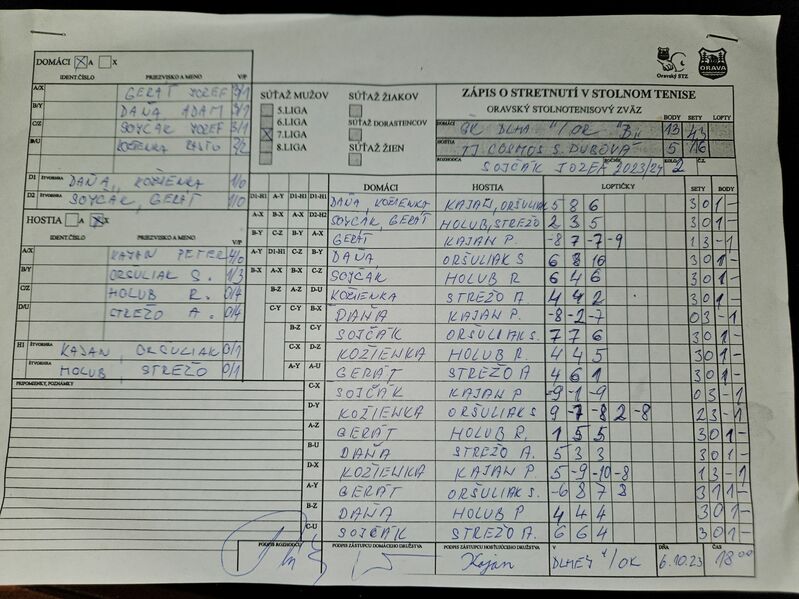 DOMÁCI A X
IDENT.ČÍSLO PRIEZVISKO A MENO V/P
A/X GERÁT JOZEF 3/1
B/Y DAŇA ADAM 3/1
C/Z SOJČÁK JOZEF 3/1
D/U KOŽIENKA RASŤO 2/2
D1 ŠTVORHRA DAŇA, KOŽIENKA 1/0
D2 ŠTVORHRA SOJČÁK, GERÁT 1/0
HOSTIA A X
IDENT.ČÍSLO PRIEZVISKO A MENO V/P
A/X KAJAN PETER 4/0
B/Y ORŠULIAK S. 1/3
C/Z HOLUB R. 0/4
D/U STREŽO A. 0/4
H1 ŠTVORHRA KAJAN, ORŠULIAK 0/1
ŠTVORHRA HOLUB STREŽO 0/1
PRIPOMIENKY, POZNÁMKY
SÚŤAŽ MUŽOV
5.LIGA
6.LIGA
7.LIGA
8.LIGA
SÚŤAŽ ŽIAKOV
SÚŤAŽ DORASTENCOV
SÚŤAŽ ŽIEN
Oravský STZ
ORAVA
ZÁPIS O STRETNUTÍ V STOLNOM TENISE
ORAVSKÝ STOLNOTENISOVÝ ZVÄZ
DOMÁCI BODY SETY LOPTY
ŠK DLHÁ "/OR "B" 13 43
HOSTIA TJ COSMOS S. DUBOVÁ 5 16
ROZHODCA SOJČÁK JOZEF ROČNÍK 2023/24 KOLO 2 Č.Z.
DOMÁCI HOSTIA LOPTIČKY SETY BODY
D1-H1 A-Y D1-H1 D1-H1 DAŇA, KOŽIENKA KAJAN, ORŠULIAK 5 8 6 3 0 1 -
A-X B-X A-X D2-H2 SOJČÁK, GERÁT HOLUB, STREŽO 2 3 5 3 0 1 -
B-Y C-Z B-Y A-X GERÁT KAJAN P. -8 7 -7 -9 1 3 - 1
A-Y D1-H1 C-Z B-Y DAŇA ORŠULIAK S 6 8 10 3 0 1 -
B-X A-X B-X C-Z SOJČÁK HOLUB R 6 4 6 3 0 1 -
B-Z A-Z D-U KOŽIENKA STREŽO A. 4 4 2 3 0 1 -
C-Y C-Y B-X DAŇA KAJAN P. -8 -2 -7 0 3 - 1
B-Z C-Y SOJČÁK ORŠULIAK S. 7 7 6 3 0 1 -
C-X D-Z KOŽIENKA HOLUB R. 4 4 5 3 0 1 -
A-Y A-U GERÁT STREŽO A 4 6 1 3 0 1 -
C-X SOJČÁK KAJAN P -9 -1 -9 0 3 - 1
D-Y KOŽIENKA ORŠULIAK S 9 -7 -8 2 -8 2 3 - 1
A-Z GERÁT HOLUB R. 1 5 5 3 0 1 -
B-U DAŇA STREŽO A. 5 3 3 3 0 1 -
D-X KOŽIENKA KAJAN P. 5 -9 -10 -8 1 3 - 1
A-Y GERÁT ORŠULIAK S. -6 8 7 8 3 1 1 -
B-Z DAŇA HOLUB P 4 4 4 3 0 1 -
C-U SOJČÁK STREŽO A. 6 6 4 3 0 1 -
PODPIS ROZHODCU PODPIS ZÁSTUPCU DOMÁCEHO DRUŽSTVA PODPIS ZÁSTUPCU HOSŤUJÚCEHO DRUŽSTVA Kajan V DLHEJ "/OR DŇA 6.10.23 ČAS 18 00